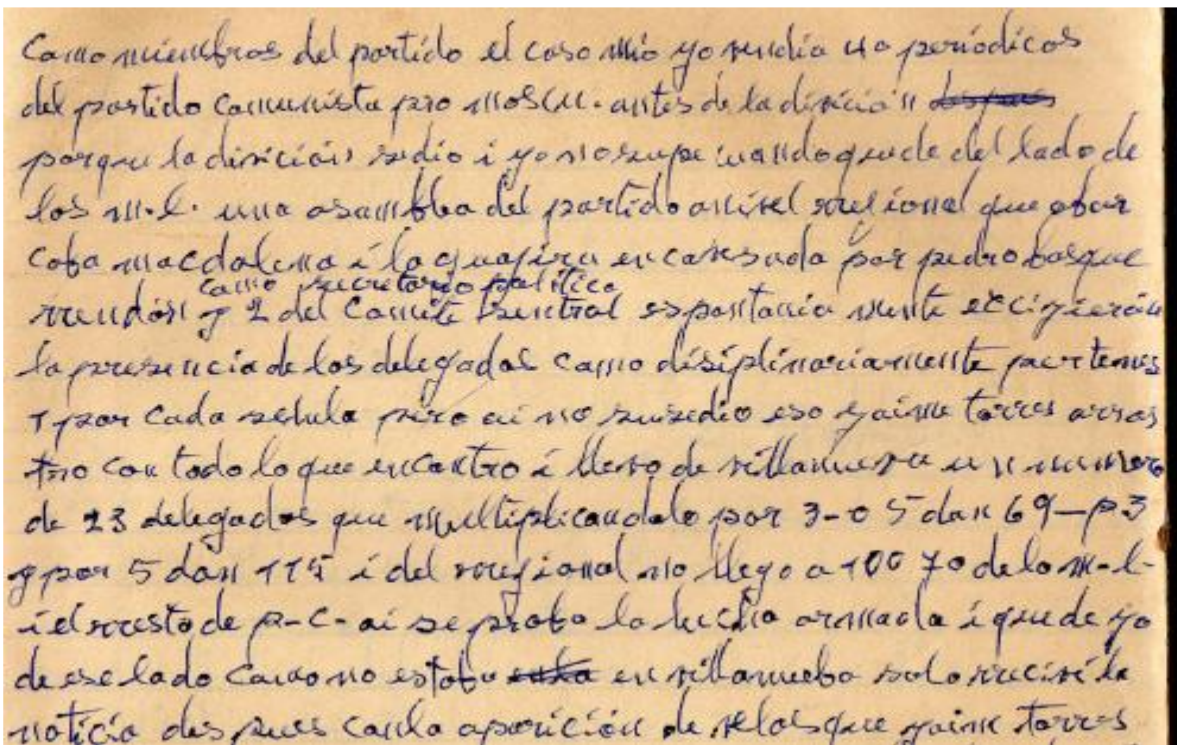 Como miembros del partido el caso mio yo vendia 40 periodicos
del partido Comunista pro moscu. antes de la divición despues
porque la divición sedio i yo no supe cuando quede del lado de
los m.l. una asamblea del partido a nivel rregional que abar
caba macdalena i la guajira encabesada por pedro basque
como secretario politico
rrendón y 2 del Comite Sentral espontania mente exigierón
la presencia de los delegados como disiplinariamente
1 por cada selula pero ai no susedio eso yaime torres arras
tro con todo lo que encontro i llevo de villanueva un numero
de 23 delegados que multiplicandolo por 3-o 5 dan 69—p3
y por 5 dan 115 i del rregional no llego a 100 70 de lo m-l-
i el rresto de p-c- ai se probo la lucha armada i quede yo
de ese lado como no estaba en villanueba solo rrecivi la
noticia des pues con la aparición de velasque yaime torres